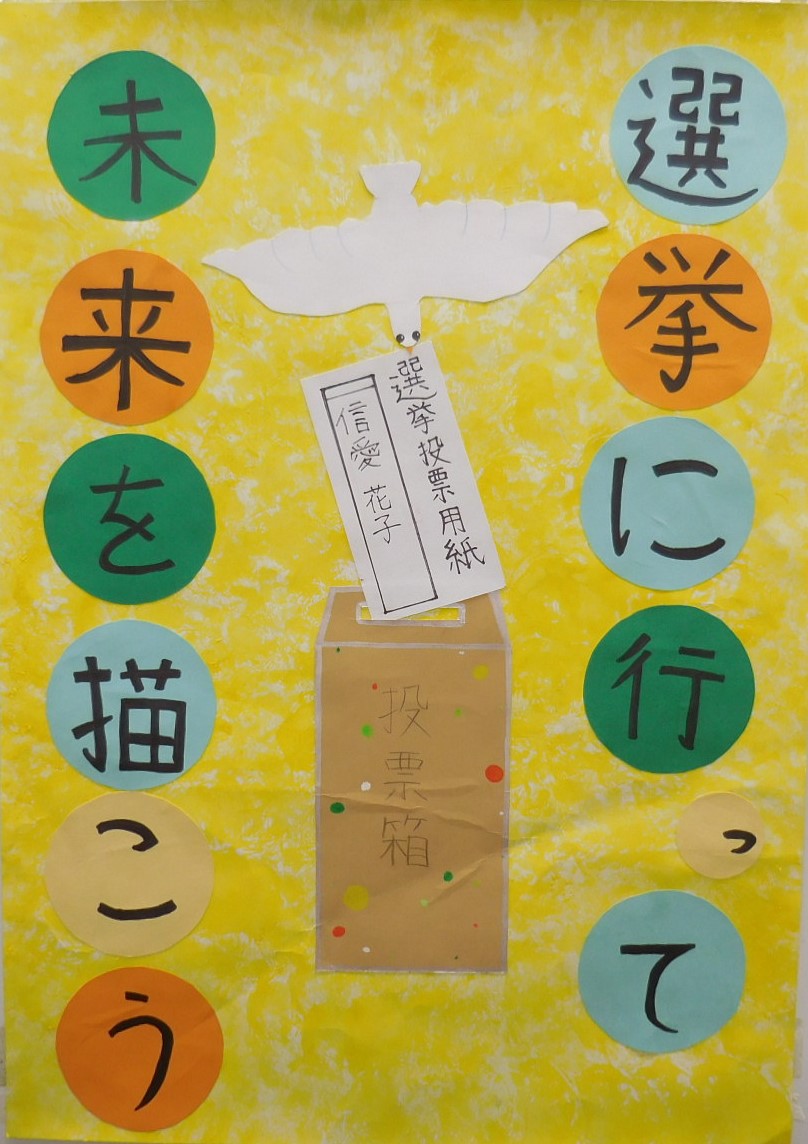 選挙に行って
未来を描こう
選挙投票用紙
信愛 花子
投票箱